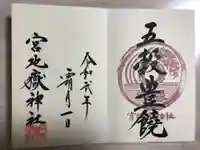 五穀豊饒
令和元年
霜月一日
宮地嶽神社